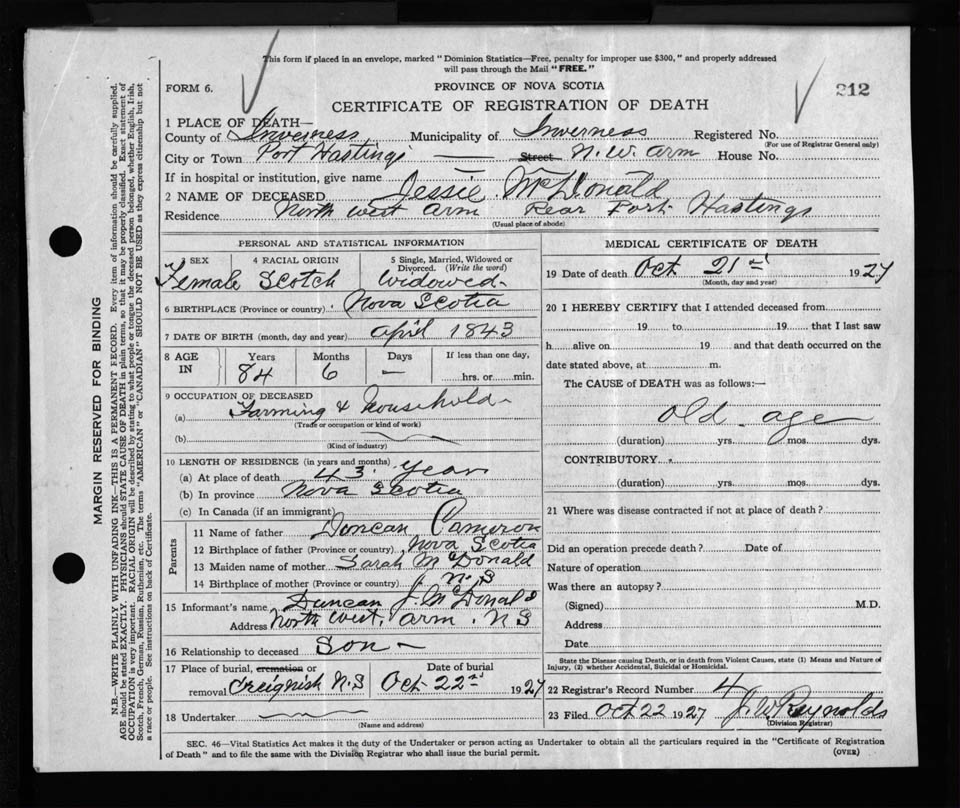 This form if placed in an envelope, marked "Dominion Statistics—Free, penalty for improper use $300," and properly addressed
will pass through the Mail "FREE."
FORM 6.
PROVINCE OF NOVA SCOTIA
212
CERTIFICATE OF REGISTRATION OF DEATH
1 PLACE OF DEATH—
County of Inverness Municipality of Inverness Registered No.
(For use of Registrar General only)
City or Town Port Hastings Street N.W. Arm House No.
If in hospital or institution, give name
2 NAME OF DECEASED Jessie McDonald
Residence North West Arm Rear Port Hastings
(Usual place of abode)
PERSONAL AND STATISTICAL INFORMATION
3 SEX 4 RACIAL ORIGIN 5 Single, Married, Widowed or Divorced. (Write the word)
Female Scotch Widowed
6 BIRTHPLACE (Province or country) Nova Scotia
7 DATE OF BIRTH (month, day and year) April 1843
8 AGE IN Years Months Days If less than one day,
84 6 — hrs. or min.
9 OCCUPATION OF DECEASED
(a) Farming & Household
(Trade or occupation or kind of work)
(b)
(Kind of industry)
10 LENGTH OF RESIDENCE (in years and months)
(a) At place of death 43 Years
(b) In province Nova Scotia
(c) In Canada (if an immigrant)
Parents
11 Name of father Duncan Cameron
12 Birthplace of father (Province or country) Nova Scotia
13 Maiden name of mother Sarah McDonald
14 Birthplace of mother (Province or country) N.S
15 Informant's name Duncan J. McDonald
Address North West Arm. NS
16 Relationship to deceased Son
17 Place of burial, cremation or removal Creignish N.S
Date of burial Oct 22nd 1927
18 Undertaker
(Name and address)
MEDICAL CERTIFICATE OF DEATH
19 Date of death Oct 21st 1927
(Month, day and year)
20 I HEREBY CERTIFY that I attended deceased from
19 to 19 that I last saw
h alive on 19 and that death occurred on the
date stated above, at m.
The CAUSE of DEATH was as follows:—
old age
(duration) yrs. mos. dys.
CONTRIBUTORY
(duration) yrs. mos. dys.
21 Where was disease contracted if not at place of death?
Did an operation precede death? Date of
Nature of operation
Was there an autopsy?
(Signed) M.D.
Address
Date
State the Disease causing Death, or in death from Violent Causes, state (1) Means and Nature of
Injury, (2) whether Accidental, Suicidal or Homicidal.
22 Registrar's Record Number 4
23 Filed Oct 22 1927 J.W. Reynolds
(Division Registrar)
SEC. 46—Vital Statistics Act makes it the duty of the Undertaker or person acting as Undertaker to obtain all the particulars required in the "Certificate of Registration
of Death" and to file the same with the Division Registrar who shall issue the burial permit.
(OVER)
MARGIN RESERVED FOR BINDING
N.B.—WRITE PLAINLY WITH UNFADING INK—THIS IS A PERMANENT RECORD. Every item of information should be carefully supplied.
AGE should be stated EXACTLY. PHYSICIANS should STATE CAUSE OF DEATH in plain terms, so that it may be properly classified. Exact statement of
OCCUPATION is very important. RACIAL ORIGIN will be described by stating to what people or tongue the deceased person belonged, whether English, Irish,
Scotch, French, German, Russian, Ruthenian, etc. The terms "AMERICAN" or "CANADIAN" SHOULD NOT BE USED as they express citizenship but not
a race or people. See instructions on back of Certificate.